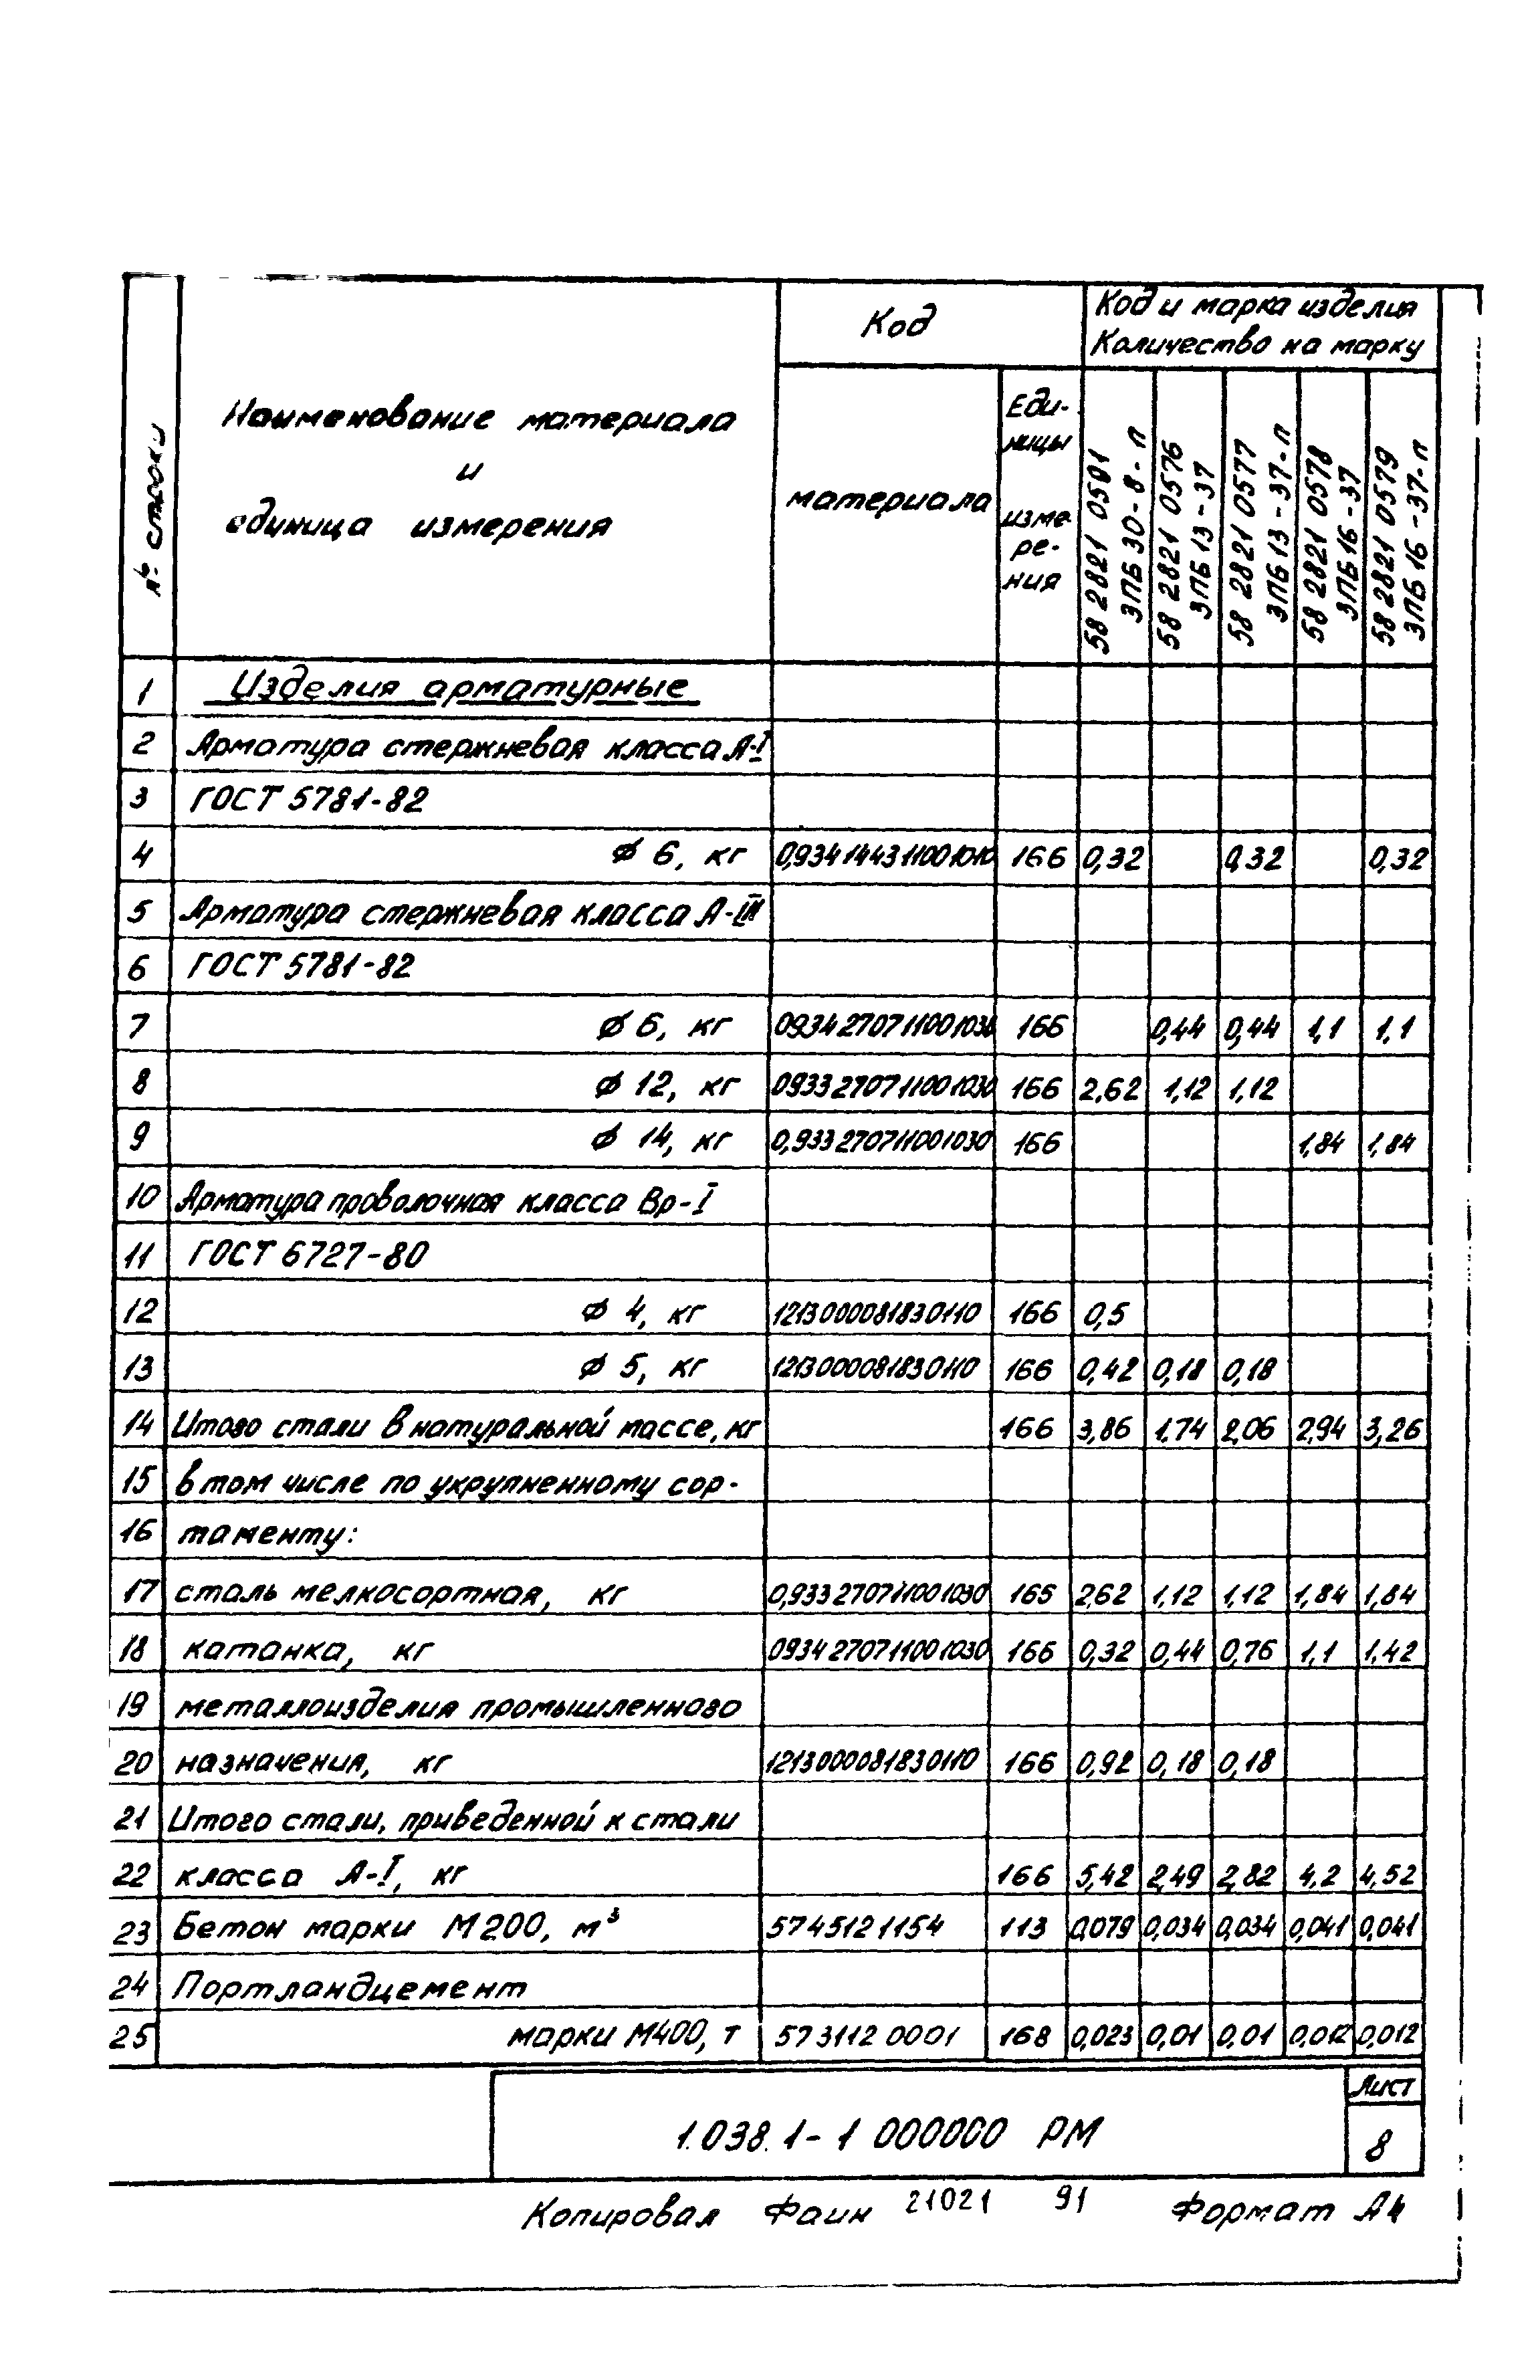 № строки
Наименование материала
и
единица измерения
Код
материала
Еди-
ницы
изме-
ре-
ния
Код и марка изделия
Количество на марку
58 2821 0501
3ПБ 30-8-п
58 2821 0576
3ПБ 13-37
58 2821 0577
3ПБ 13-37-п
58 2821 0578
3ПБ 16-37
58 2821 0579
3ПБ 16-37-п
1 Изделия арматурные
2 Арматура стержневая класса А-I
3 ГОСТ 5781-82
4 ϕ 6, кг 0,934144311001010 166 0,32 0,32 0,32
5 Арматура стержневая класса А-III
6 ГОСТ 5781-82
7 ϕ 6, кг 0934270711001030 166 0,44 0,44 1,1 1,1
8 ϕ 12, кг 0933270711001030 166 2,62 1,12 1,12
9 ϕ 14, кг 0,933270711001030 166 1,84 1,84
10 Арматура проволочная класса Вр-I
11 ГОСТ 6727-80
12 ϕ 4, кг 1213000081830110 166 0,5
13 ϕ 5, кг 1213000081830110 166 0,42 0,18 0,18
14 Итого стали в натуральной массе, кг 166 3,86 1,74 2,06 2,94 3,26
15 в том числе по укрупненному сор-
16 таменту:
17 сталь мелкосортная, кг 0,933270711001030 166 2,62 1,12 1,12 1,84 1,84
18 катанка, кг 0934270711001030 166 0,32 0,44 0,76 1,1 1,42
19 металлоизделия промышленного
20 назначения, кг 1213000081830110 166 0,92 0,18 0,18
21 Итого стали, приведенной к стали
22 класса А-I, кг 166 5,42 2,49 2,82 4,2 4,52
23 Бетон марки М200, м³ 5745121154 113 0,079 0,034 0,034 0,041 0,041
24 Портландцемент
25 марки М400, т 573112 0001 168 0,023 0,01 0,01 0,012 0,012
1.038.1-1 000000 РМ
Лист
8
Копировал Фаин 21021 91 Формат А4